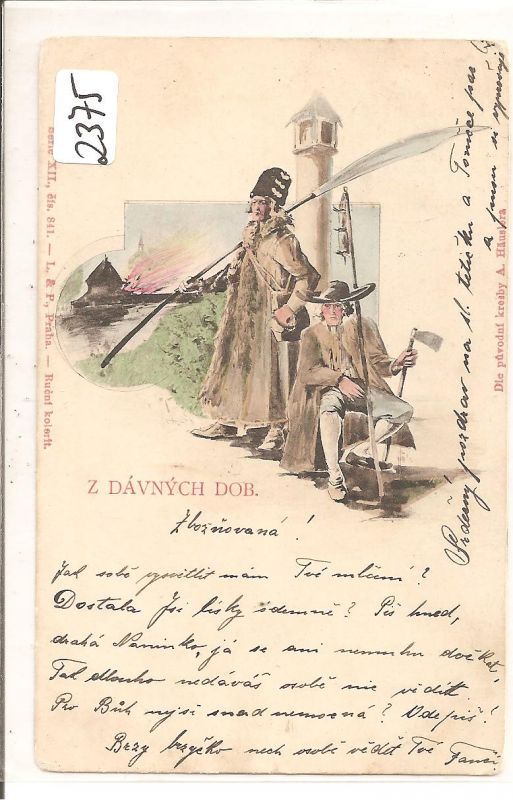 2375
Serie XII., čís. 841. — L. & P., Praha. — Ruční kolorit.
Dle původní kresby A. Häuslera
Z DÁVNÝCH DOB.
Zbožňovaná!
Jak sobě vysvětlit mám Tvé mlčení?
Dostala Jsi lísky ódemně? Piš hned,
drahá Naninko, já se ani nemohu dočkat,
Tak dlouho nedáváš osobě nic vědět
Pro Bůh nejsi snad nemocná? Odepiš!
Brzy brzyčko nech osobě vědět Tvé Fanči.
Srdečný pozdrav na sl. tetičku a
a